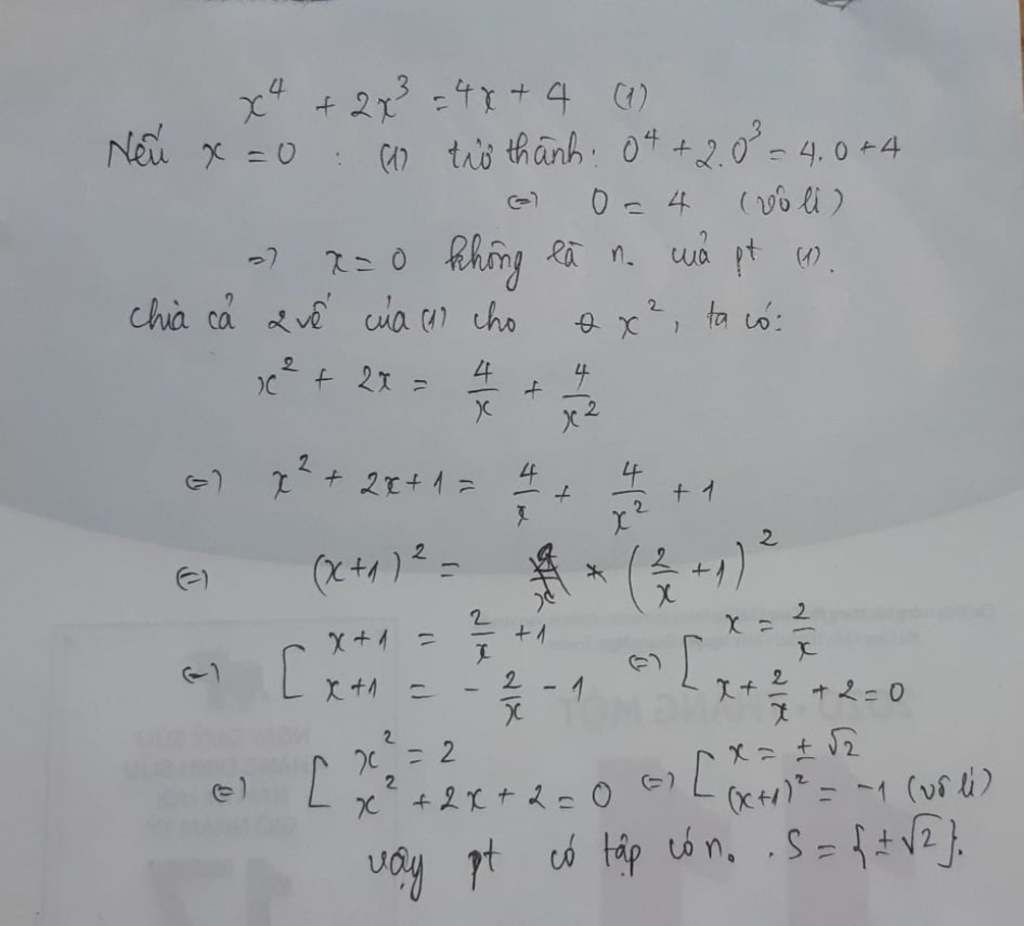 x⁴ + 2x³ = 4x + 4 (1)
Nếu x = 0 : (1) trở thành: 0⁴ + 2.0³ = 4.0 + 4
⇔ 0 = 4 (vô lí)
⇒ x = 0 không là n. của pt (1).
Chia cả 2 vế của (1) cho x², ta có:
x² + 2x = 4/x + 4/x²
⇔ x² + 2x + 1 = 4/x + 4/x² + 1
⇔ (x+1)² = (2/x + 1)²
⇔ [ x+1 = 2/x + 1 ⇔ [ x = 2/x
x+1 = - 2/x - 1 x + 2/x + 2 = 0
⇔ [ x² = 2 ⇔ [ x = ± √2
x² + 2x + 2 = 0 (x+1)² = -1 (vô lí)
vậy pt có tập có n. . S = {± √2}.